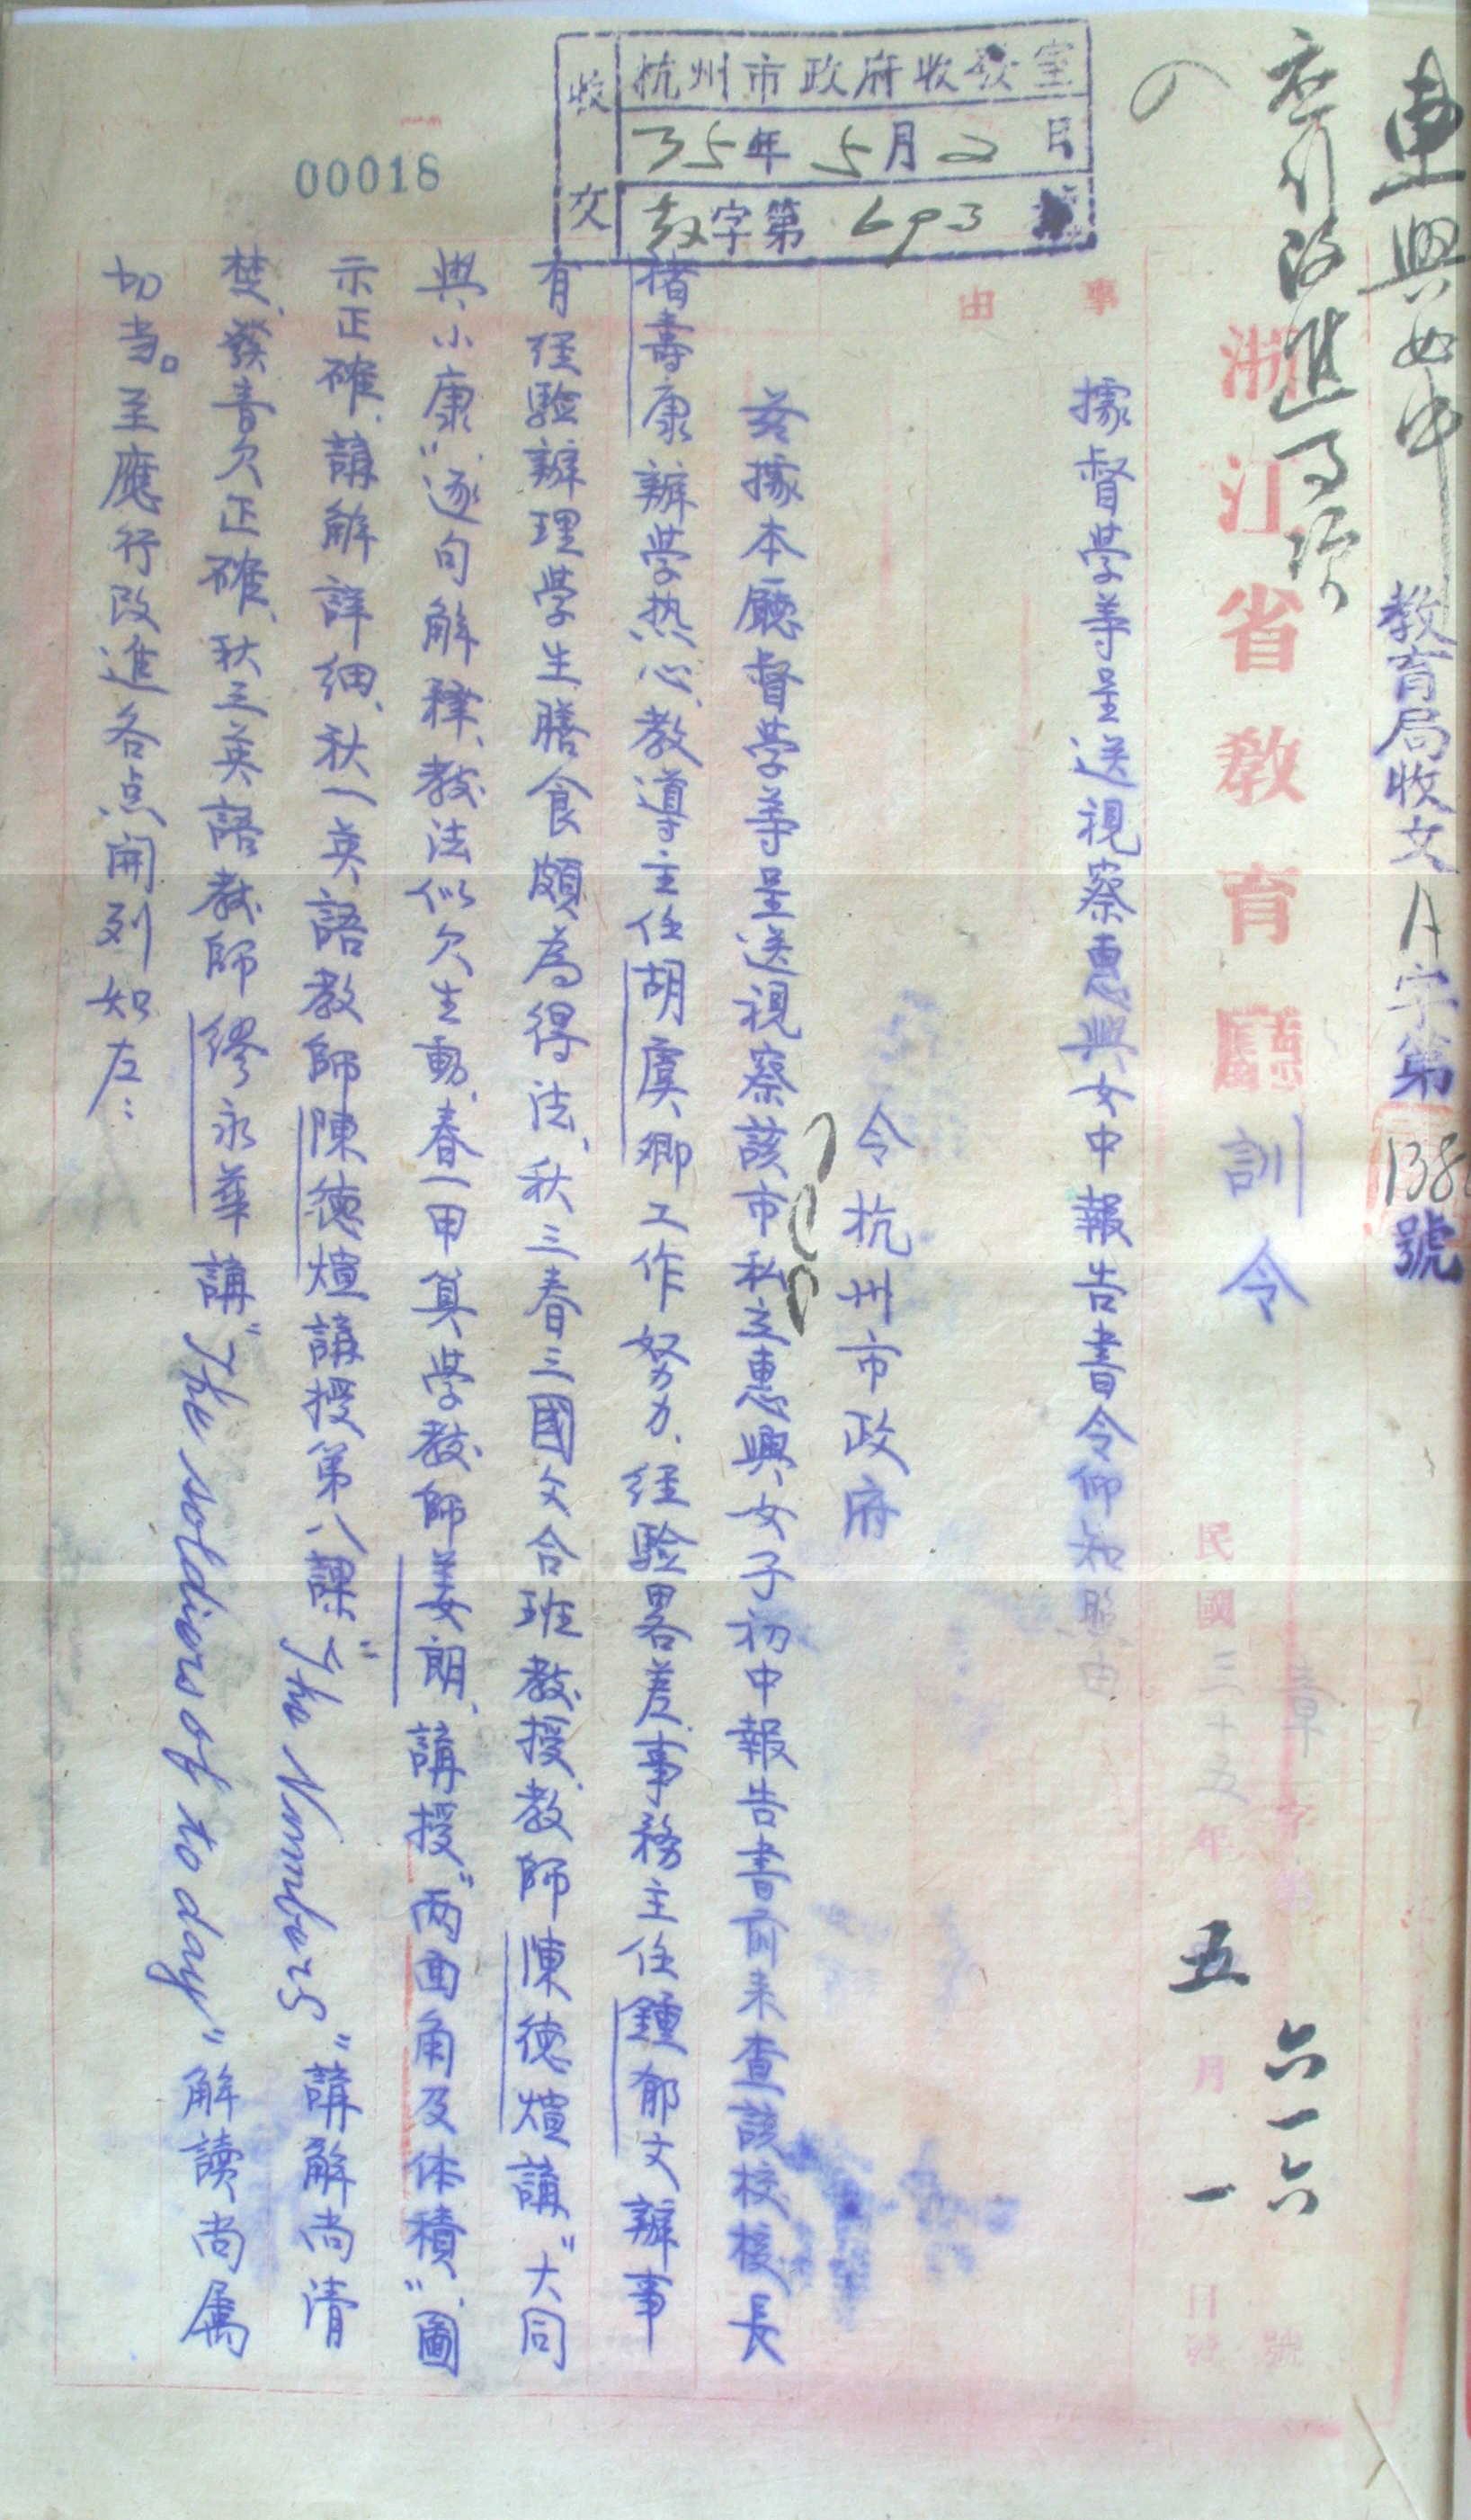 惠興女中
應行改進事項
教育局收文A字第138號
杭州市政府收發室
收文
35年5月2日
教字第693號
00018
浙江省教育廳訓令
章字第六一六號
民國三十五年五月一日發
事由
據督學等呈送視察惠興女中報告書令仰知照由
令杭州市政府
茲據本廳督學等呈送視察該市私立惠興女子初中報告書前來查該校校長
褚壽康辦学热心、教導主任胡虞卿工作努力、经驗畧差、事務主任鍾郁文辦事
有经驗辦理学生膳食頗為得法、秋三春三國文合班教授、教師陳德煊講"大同
與小康"、逐句解釋、教法似欠生動、春一甲算学教師姜朗、講授"兩面角及体積"、圖
示正確、講解詳细、秋一英語教師陳德煊講授第八課"The Numbers"講解尚清
楚、發音欠正確、秋三英語教師繆永華講"The soldiers of to day"解讀尚属
切当。至應行改進各点開列如左：